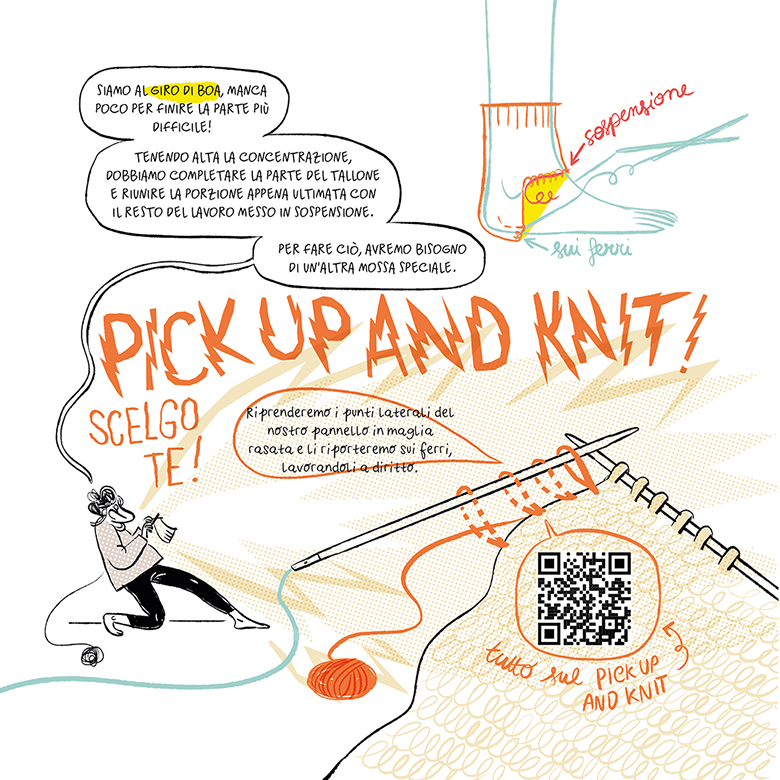 SIAMO AL GIRO DI BOA, MANCA
POCO PER FINIRE LA PARTE PIÙ
DIFFICILE!
TENENDO ALTA LA CONCENTRAZIONE,
DOBBIAMO COMPLETARE LA PARTE DEL TALLONE
E RIUNIRE LA PORZIONE APPENA ULTIMATA CON
IL RESTO DEL LAVORO MESSO IN SOSPENSIONE.
PER FARE CIÒ, AVREMO BISOGNO
DI UN'ALTRA MOSSA SPECIALE.
sospensione
sui ferri
PICK UP AND KNIT!
SCELGO
TE!
Riprenderemo i punti laterali del
nostro pannello in maglia
rasata e li riporteremo sui ferri,
lavorandoli a diritto.
tutto sul PICK UP
AND KNIT